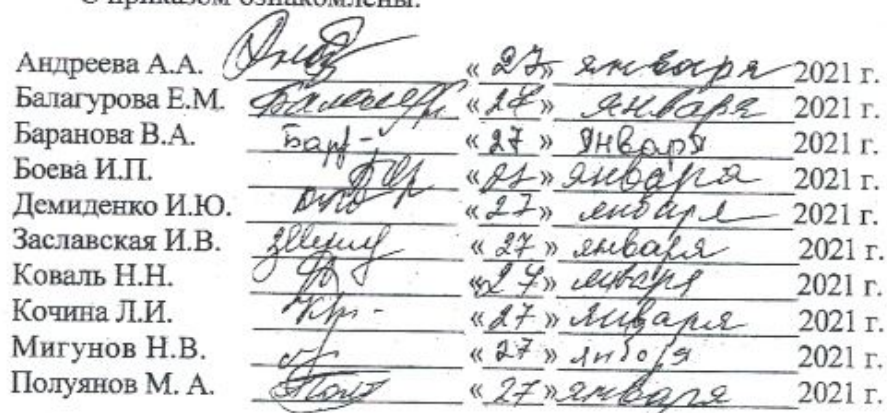 С приказом ознакомлены:
Андреева А.А. « 27 » января 2021 г.
Балагурова Е.М. « 27 » января 2021 г.
Баранова В.А. Бар- « 27 » января 2021 г.
Боева И.П. января 2021 г.
Демиденко И.Ю. « 27 » января 2021 г.
Заславская И.В. « 27 » января 2021 г.
Коваль Н.Н. « 27 » января 2021 г.
Кочина Л.И. « 27 » января 2021 г.
Мигунов Н.В. « 27 » января 2021 г.
Полуянов М. А. « 27 » января 2021 г.